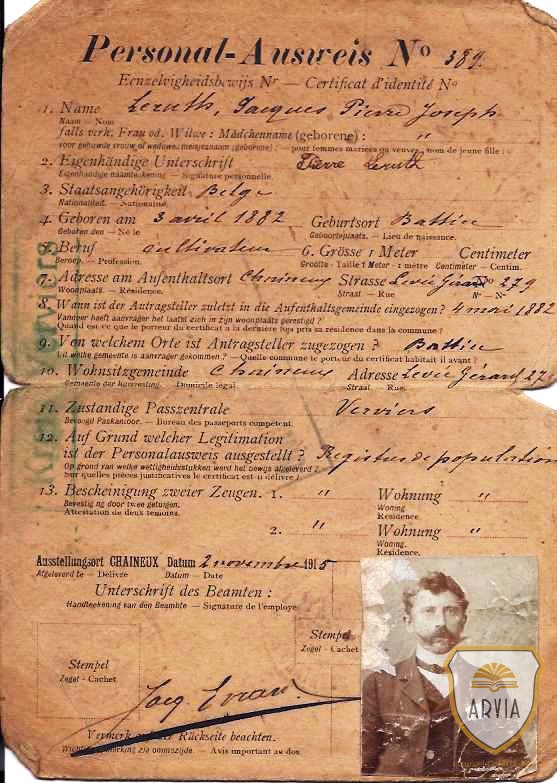 Personal-Ausweis No 389
Eenzelvigheidsbewijs Nr — Certificat d'identité No
1. Name Leruth, Jacques Pierre Joseph
Naam — Nom
falls verh. Frau od. Witwe: Mädchenname (geborene): "
voor gehuwde vrouw of weduwe, meisjesnaam (geborene): — pour femmes mariées ou veuves, nom de jeune fille:
2. Eigenhändige Unterschrift Pierre Leruth
Eigenhandige naamteekening — Signature personnelle.
3. Staatsangehörigkeit Belge
Nationaliteit. — Nationalité.
4. Geboren am 3 avril 1882 Geburtsort Battice
Geboren den — Né le Geboorteplaats. — Lieu de naissance.
Beruf cultivateur 6. Grösse 1 Meter Centimeter
Beroep. — Profession. Grootte - Taille 1 Meter - 1 mètre Centimeter — Centim.
7. Adresse am Aufenthaltsort Chaineux Strasse Levée Girard No 279
Woonplaats. — Résidence. Straat. — Rue No — No
8. Wann ist der Antragsteller zuletzt in die Aufenthaltsgemeinde eingezogen? 4 mai 1882
Wanneer heeft aanvrager het laatst zich in zijn woonplaats gevestigd?
Quand est-ce que le porteur du certificat a la dernière fois pris sa résidence dans la commune?
9. Von welchem Orte ist Antragsteller zugezogen? Battice
Uit welke gemeente is aanvrager gekomen? — Quelle commune le porteur du certificat habitait il avant?
10. Wohnsitzgemeinde Chaineux Adresse Levée Girard 27
Gemeente der huisvesting. — Domicile légal Straat. — Rue.
11. Zuständige Passzentrale Verviers
Bevoegd Paskantoor. — Bureau des passeports compétent.
12. Auf Grund welcher Legitimation
ist der Personalausweis ausgestellt? Registre de population
Op grond van welke wettigheidsstukken werd het bewijs afgeleverd?
Sur quelles pièces justificatives le certificat est-il délivré?
13. Bescheinigung zweier Zeugen. 1. " Wohnung "
Bevestiging door twee getuigen. Woning
Attestation de deux témoins. Résidence
2. " Wohnung "
Woning.
Résidence.
Ausstellungsort CHAINEUX Datum 2 novembre 1915
Afgeleverd te — Délivré Datum — Date
Unterschrift des Beamten:
Handteekening van den Beambte — Signature de l'employé
Stempel
Zegel - Cachet
Stempel
Zegel - Cachet
Vermerk auf der Rückseite beachten.
Avis important au dos
ARVIA